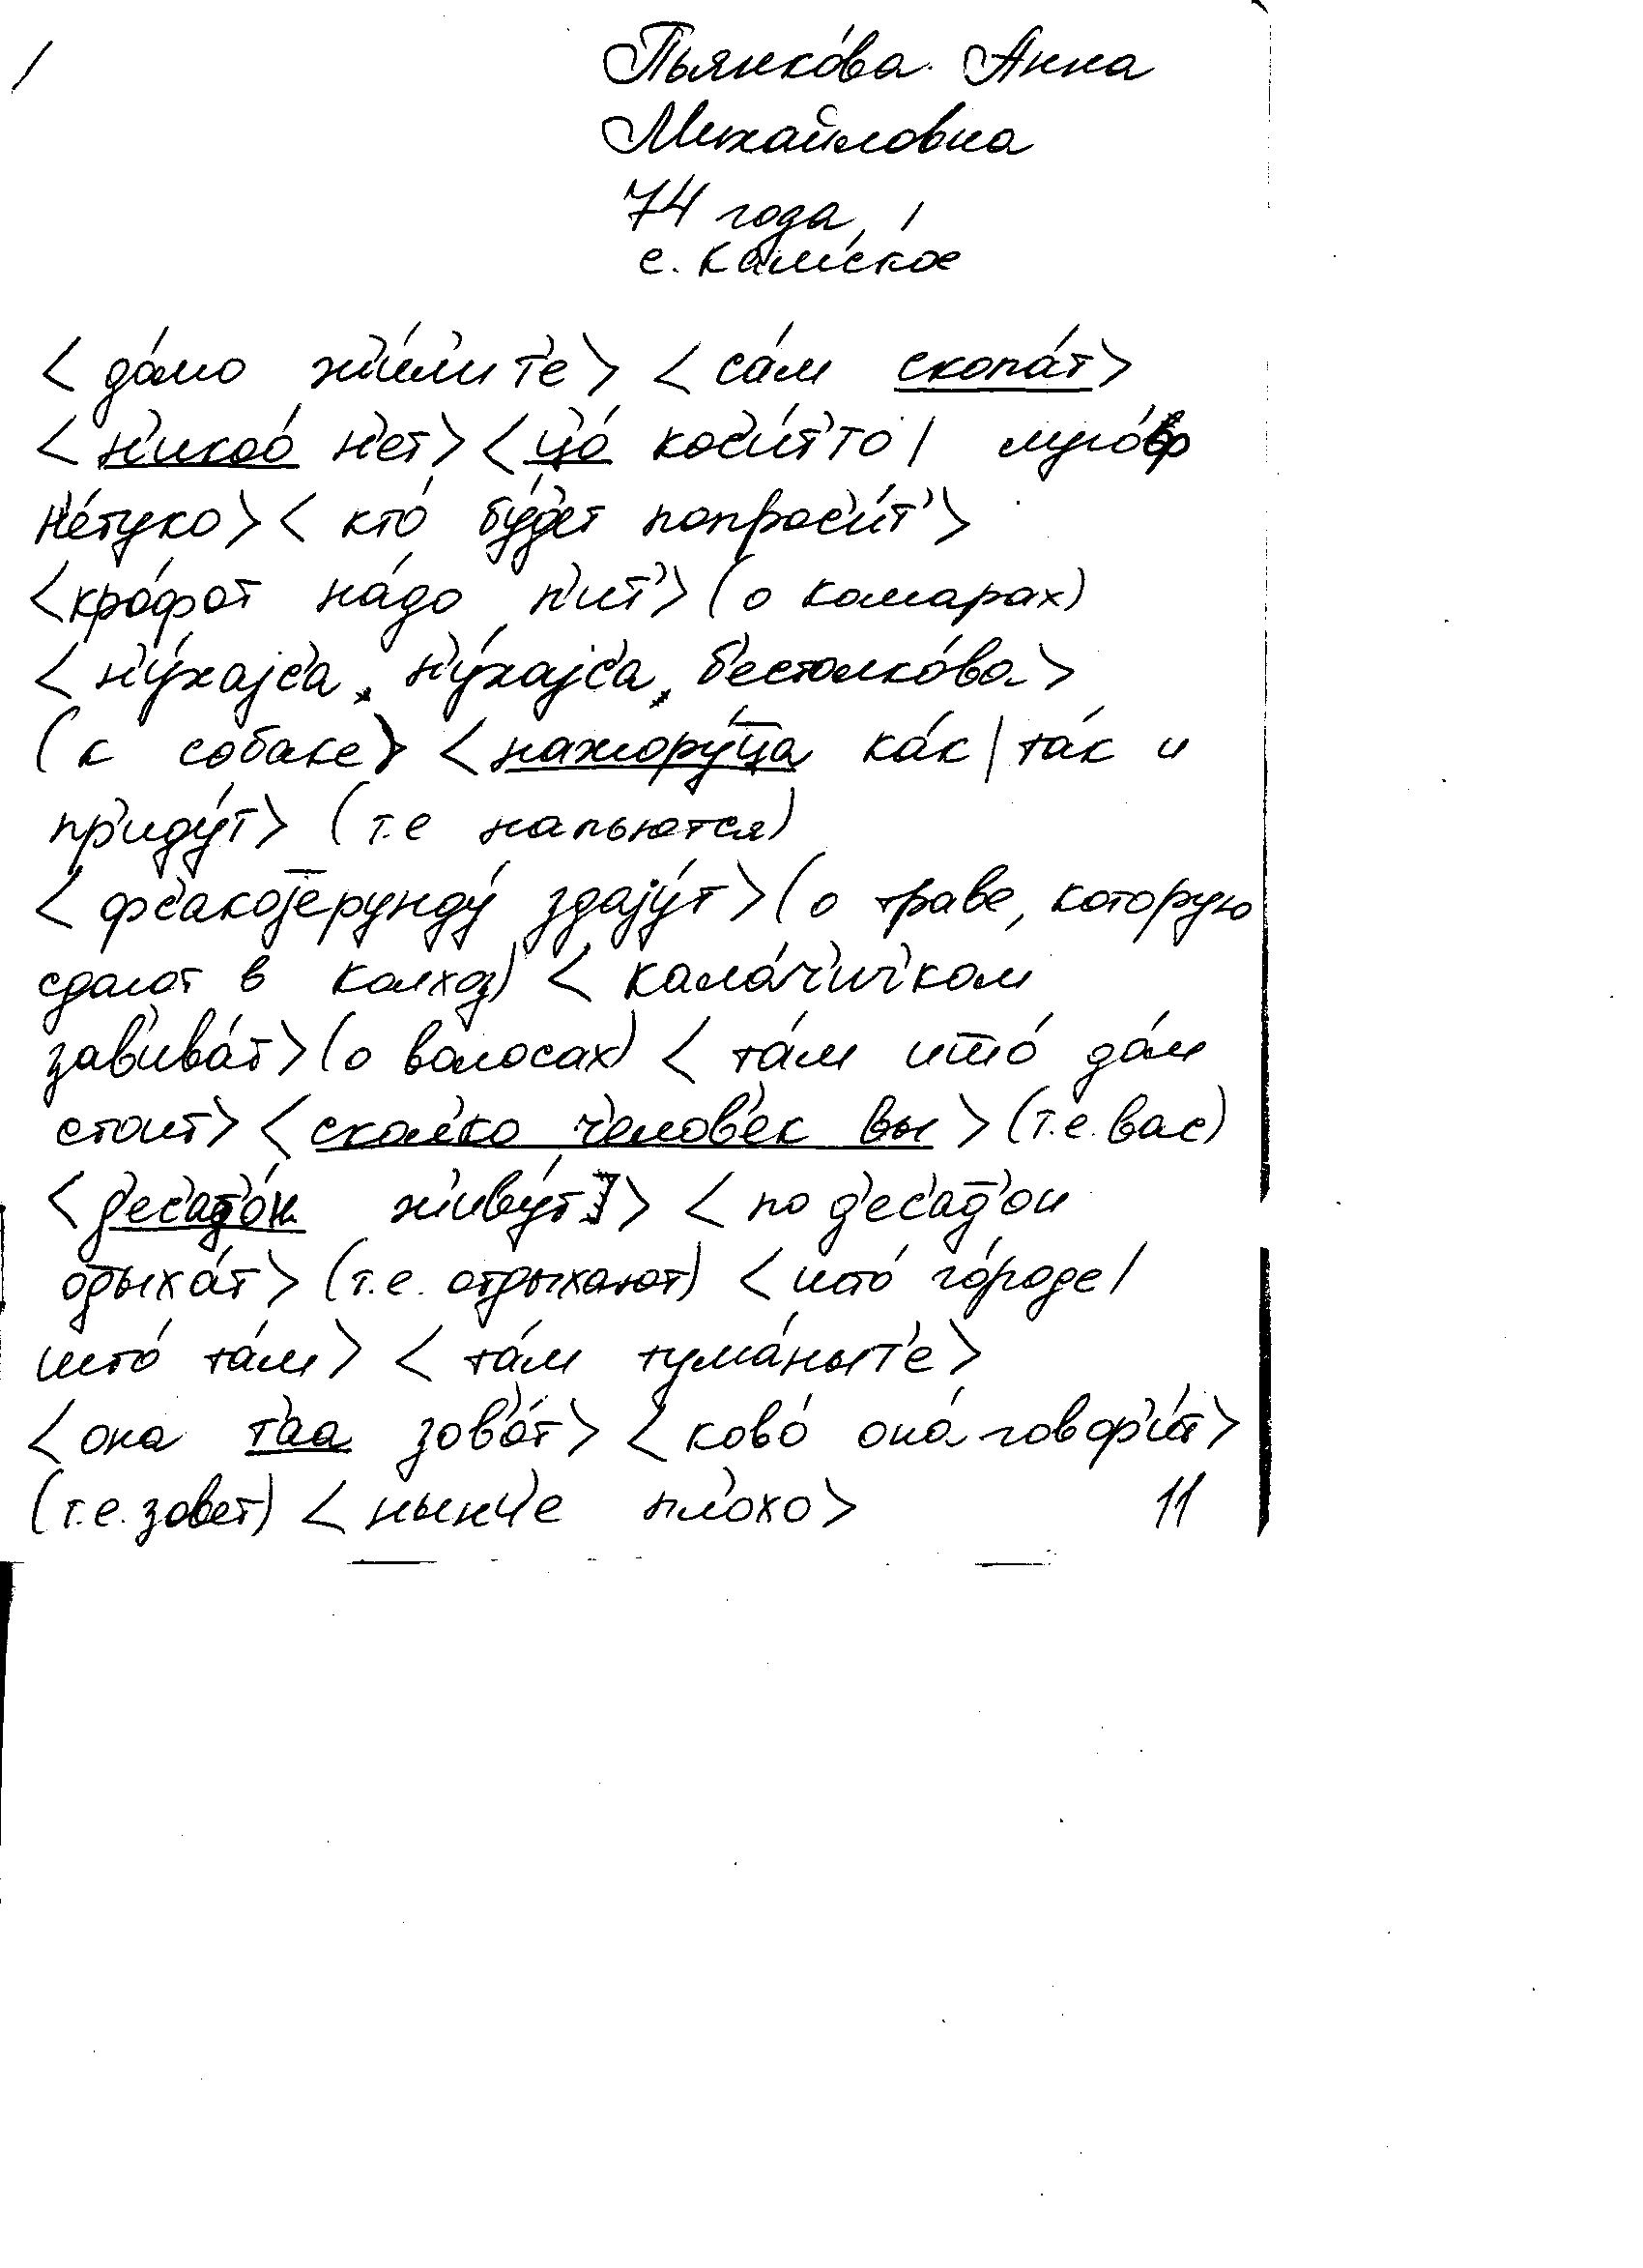 /
Пьянко́ва Анна
Михайловна
74 года,
с. Ка́мское
<да́мо жы́ли т'е> <са́м скопа́т>
<н'икоо́ н'ет> <цо́ кос'и́т'то |
н'е́туко> <кто́ бу́д'ет попрос'и́т'>
<кро́фот на́до п'ит'> (о комарах)
<н'у́хајс'а, н'у́хајс'а, б'естолко́ва>
(к собаке) <нажору́ца ка́к | та́к и
пр'иду́т> (т.е напьются)
<фс'акојерунду́ здају́т> (о траве, которую
сдают в колхоз) <кала́ч'ич'ком
зав'ива́т> (о волосах) <та́м што́ до́м
стоит> <скол'ко ч'елов'ек вы> (т.е. вас)
<д'ес'ат'о́н жыву́т> <по д'ес'ат'ои
одыха́т> (т.е. отдыхают) <што́ го́роде |
што́ та́м> <та́м тума́ныт'е>
<она т'аа зов'о́т> <ково́ она́ говор'и́т>
(т.е. зовет) <нынч'е плохо> 11